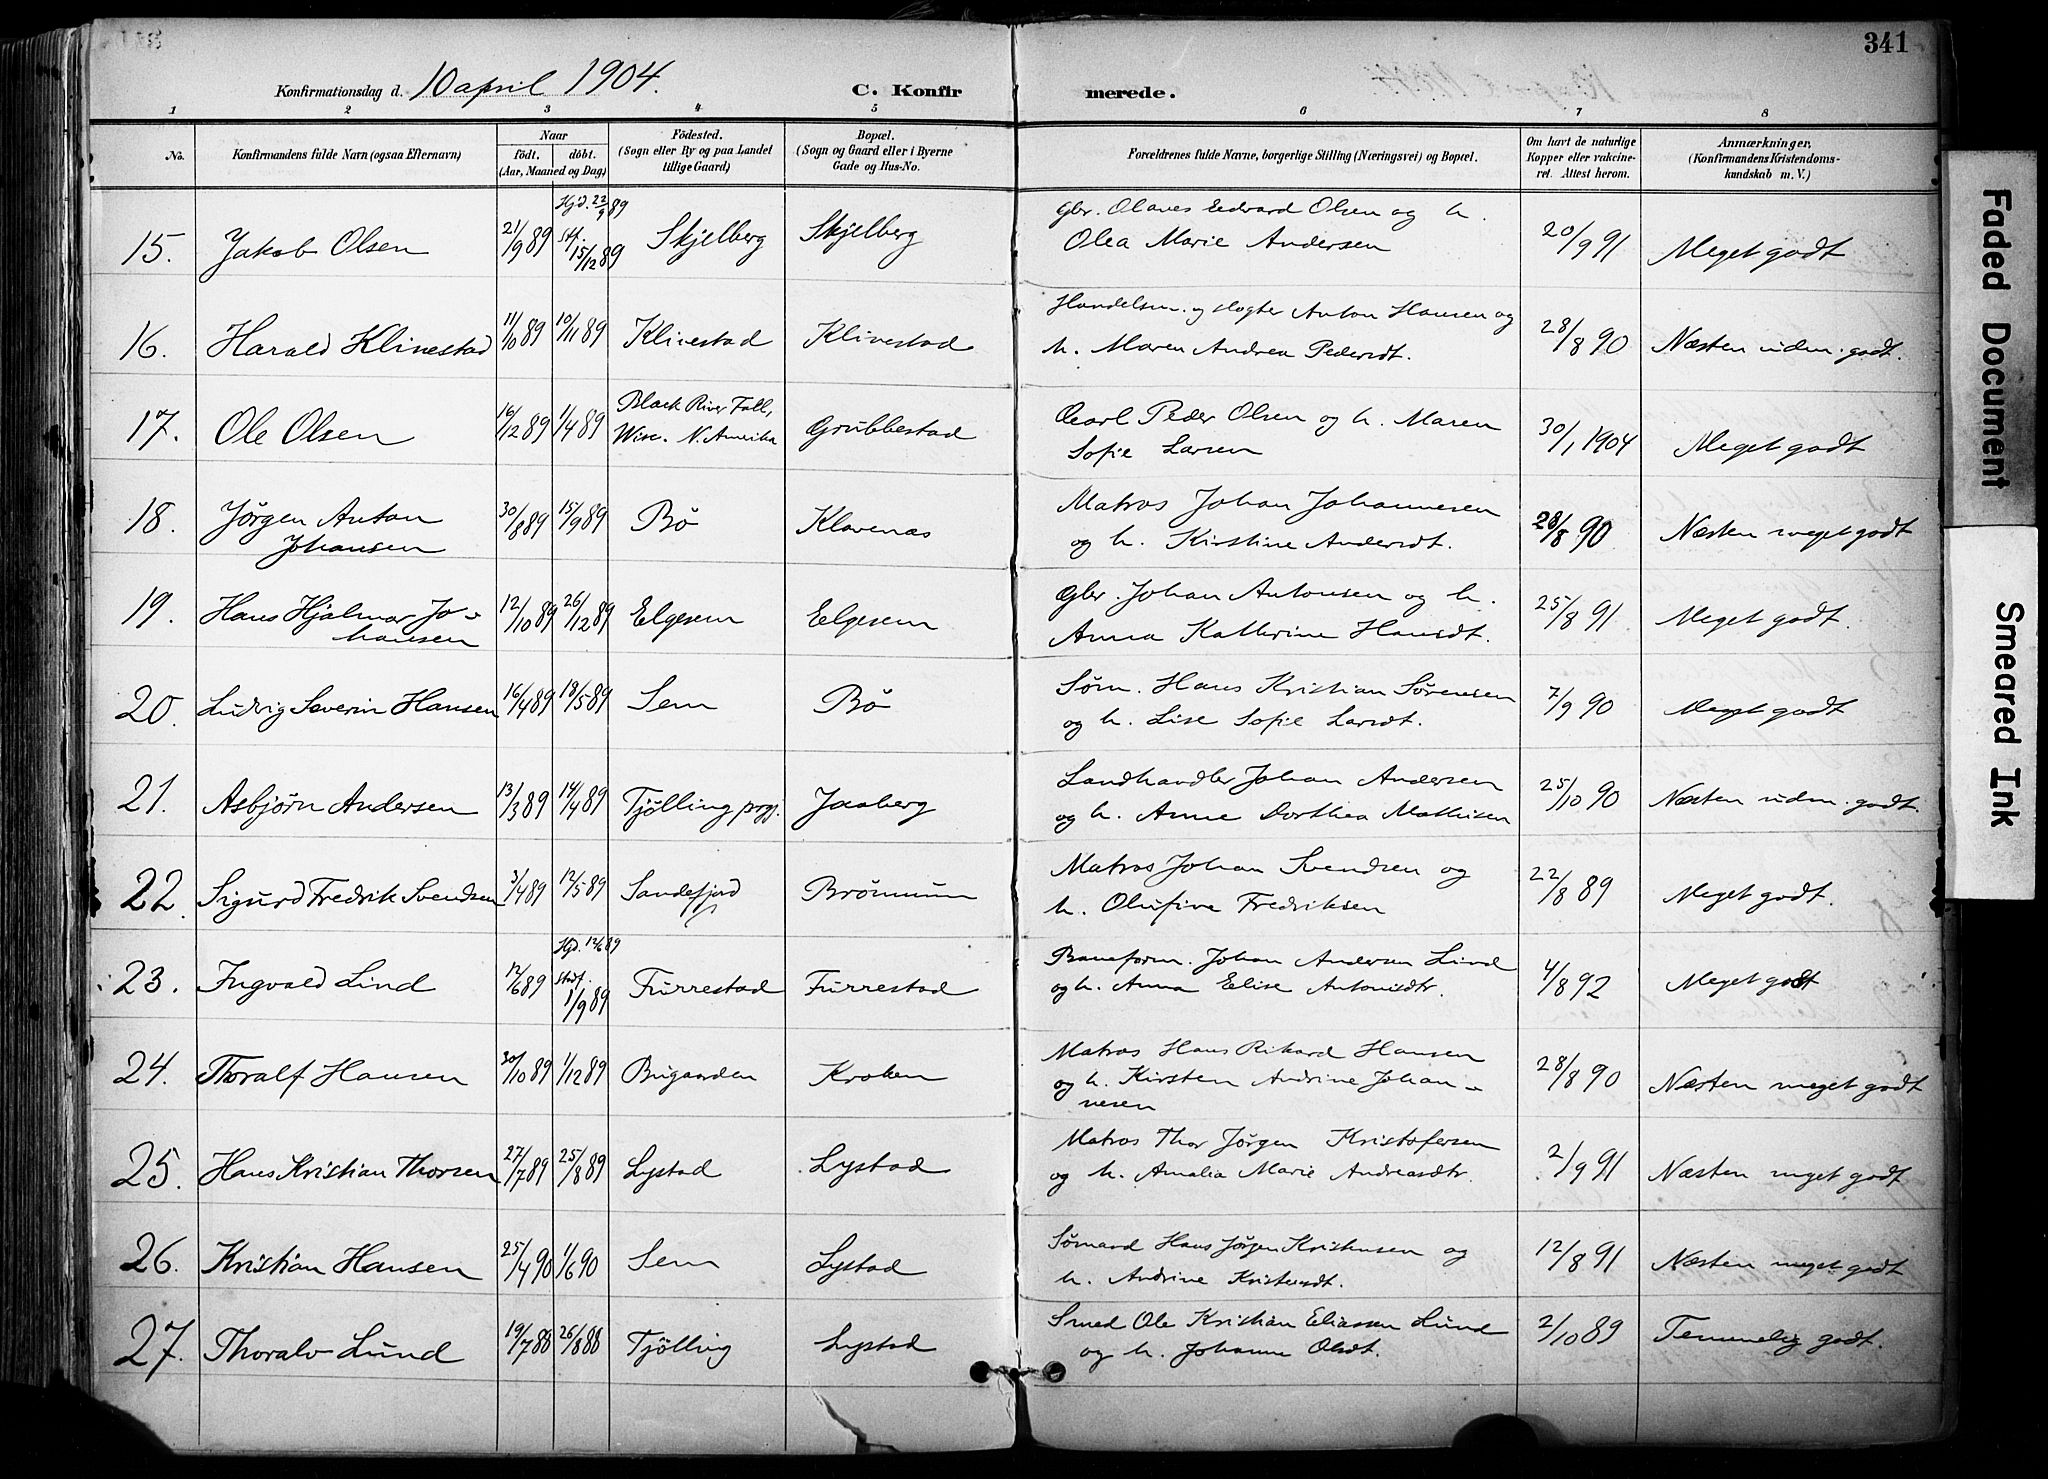 341
Konfirmationsdag d. 10 april 1904. C. Konfirmerede.
1 2 3 4 5 6 7 8
No. Konfirmandens fulde Navn (ogsaa Efternavn) Naar født. døbt. (Aar, Maaned og Dag) Födested. (Sogn eller By og paa Landet tillige Gaard) Bopæl. (Sogn og Gaard eller i Byerne Gade og Hus-No. Forældrenes fulde Navne, borgerlige Stilling (Næringsvei) og Bopæl. Om havt de naturlige Kopper eller vakcineret. Attest herom. Anmærkninger, (Konfirmandens Kristendomskundskab m. V.)
15. Jakob Olsen 21/9 89 Hjd. 22/9 89 Stf. 15/12 89 Skjelberg Skjelberg Gbr. Olaves Edvard Olsen og h. Olea Marie Andersen 20/9 91 Meget godt
16. Harald Klinestad 11/10 89 10/11 89 Klinestad Klinestad Handelsm. og slagter Anton Hansen og h. Maren Andrea Pedersdt. 28/8 90 Næsten udm. godt.
17. Ole Olsen 16/12 89 1/4 89 Black River Fall, Wisc. N. Amerika Grubbestad Peder Olsen og h. Maren Sofie Larsen 30/1 1904 Meget godt
18. Jørgen Anton Johansen 30/8 89 15/9 89 Bø Klavenas Matros Johan Johannesen og h. Kirstine Andersdt. 28/8 90 Næsten meget godt
19. Hans Hjalmar Johansen 12/10 89 26/12 89 Elgesem Elgesem Gbr. Johan Antonsen og h. Anna Katherine Hansdt. 25/8 91 Meget godt.
20. Ludvig Severin Hansen 16/4 89 18/5 89 Sem Bø Søm. Hans Kristian Sørensen og h. Lise Sofie Larsdt. 7/9 90 Meget godt
21. Asbjørn Andersen 13/3 89 14/4 89 Tjølling prgj. Jaaberg Landhandler Johan Andersen og h. Anne Dorthea Mathisen 25/10 90 Næsten udm. godt.
22. Sigurd Fredrik Svendsen 3/4 89 12/5 89 Sandefjord Brønnum Matros Johan Svendsen og h. Olufine Fredriksen 22/8 89 Meget godt.
23. Ingvald Lind 12/6 89 Hjd. 12/6 89 stadf. 1/9 89 Furrestad Furrestad Baneform. Johan Andersen Lind og h. Anna Elise Antonisdtr. 4/8 92 Meget godt
24. Thoralf Hansen 30/10 89 1/12 89 Bugaarden Kroken Matros Hans Rikard Hansen og h. Kirsten Andrine Johannesen 28/8 90 Næsten meget godt
25. Hans Kristian Thorsen 27/7 89 25/8 89 Lystad Lystad Matros Thor Jørgen Kristofersen og h. Amalia Marie Andreasdtr. 2/9 91 Næsten meget godt
26. Kristian Hansen 25/4 90 1/6 90 Sem Lystad Sømand Hans Jørgen Kristensen og h. Andrine Kristensdt. 12/8 91 Næsten meget godt
27. Thoralv Lund 19/7 88 26/8 88 Tjølling Lystad Smed Ole Kristian Eliassen Lund og h. Johanne Olsdt. 2/10 89 Temmelig godt.
Faded Document
Smeared Ink